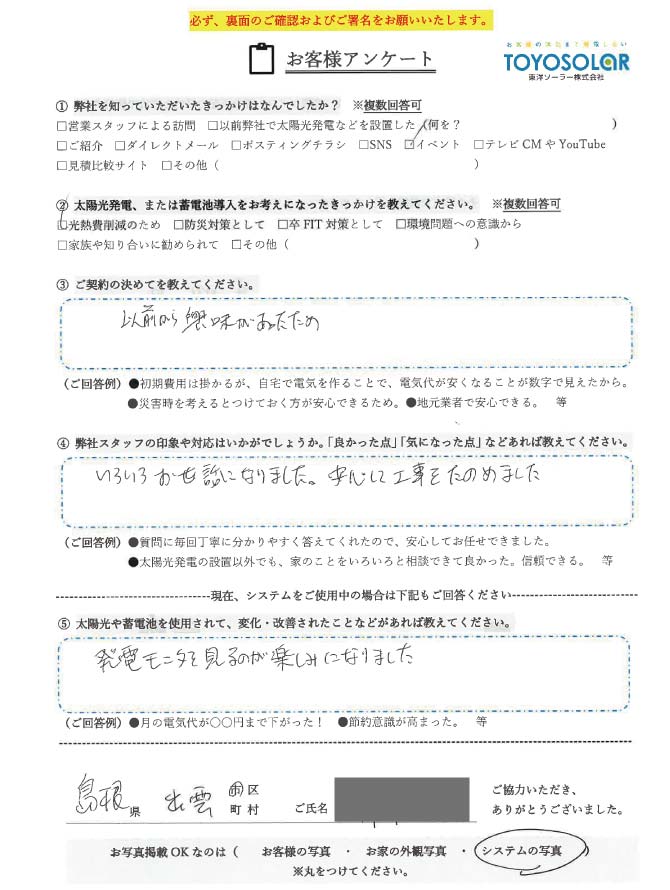 必ず、裏面のご確認およびご署名をお願いいたします。
お客様アンケート
お客様の満足まで発電したい
TOYOSOLAR
東洋ソーラー株式会社
① 弊社を知っていただいたきっかけはなんでしたか? ※複数回答可
□営業スタッフによる訪問 □以前弊社で太陽光発電などを設置した(何を? )
□ご紹介 □ダイレクトメール □ポスティングチラシ □SNS □イベント □テレビCMやYouTube
□見積比較サイト □その他( )
② 太陽光発電、または蓄電池導入をお考えになったきっかけを教えてください。 ※複数回答可
□光熱費削減のため □防災対策として □卒FIT対策として □環境問題への意識から
□家族や知り合いに勧められて □その他( )
③ ご契約の決めてを教えてください。
以前から興味があったため
(ご回答例)●初期費用は掛かるが、自宅で電気を作ることで、電気代が安くなることが数字で見えたから。
●災害時を考えるとつけておく方が安心できるため。●地元業者で安心できる。 等
④ 弊社スタッフの印象や対応はいかがでしょうか。「良かった点」「気になった点」などあれば教えてください。
いろいろお世話になりました。安心して工事をたのめました
(ご回答例)●質問に毎回丁寧に分かりやすく答えてくれたので、安心してお任せできました。
●太陽光発電の設置以外でも、家のことをいろいろと相談できて良かった。信頼できる。 等
現在、システムをご使用中の場合は下記もご回答ください
⑤ 太陽光や蓄電池を使用されて、変化・改善されたことなどがあれば教えてください。
発電モニタを見るのが楽しみになりました
(ご回答例)●月の電気代が〇〇円まで下がった! ●節約意識が高まった。 等
島根県 出雲 市区町村 ご氏名
ご協力いただき、
ありがとうございました。
お写真掲載OKなのは( お客様の写真 ・ お家の外観写真 ・ システムの写真 )
※丸をつけてください。